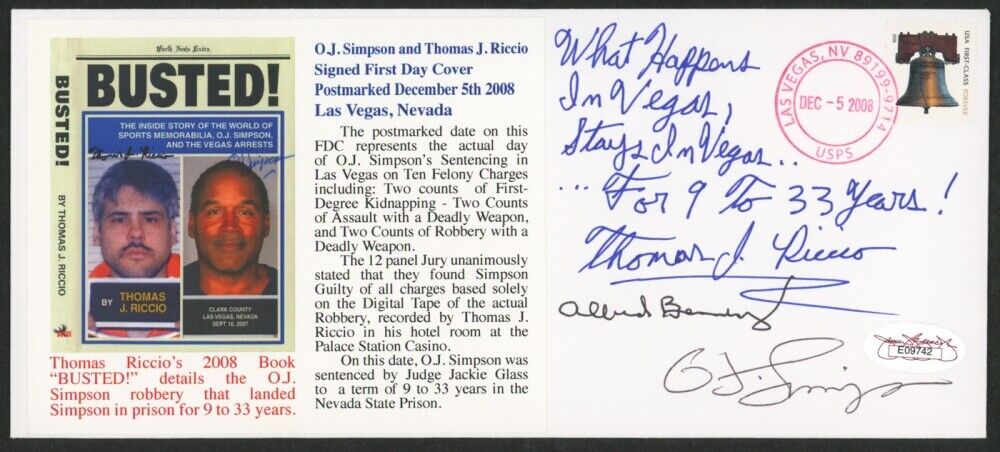 World News Extra
BUSTED!
BUSTED!
BY THOMAS J. RICCIO
THE INSIDE STORY OF THE WORLD OF
SPORTS MEMORABILIA, O.J. SIMPSON,
AND THE VEGAS ARRESTS
Thomas J. Riccio
OJ Simpson
BY THOMAS
J. RICCIO
CLARK COUNTY
LAS VEGAS, NEVADA
SEPT 16, 2007
Thomas Riccio's 2008 Book
“BUSTED!” details the O.J.
Simpson robbery that landed
Simpson in prison for 9 to 33 years.
O.J. Simpson and Thomas J. Riccio
Signed First Day Cover
Postmarked December 5th 2008
Las Vegas, Nevada
The postmarked date on this
FDC represents the actual day
of O.J. Simpson's Sentencing in
Las Vegas on Ten Felony Charges
including: Two counts of First-
Degree Kidnapping - Two Counts
of Assault with a Deadly Weapon,
and Two Counts of Robbery with a
Deadly Weapon.
The 12 panel Jury unanimously
stated that they found Simpson
Guilty of all charges based solely
on the Digital Tape of the actual
Robbery, recorded by Thomas J.
Riccio in his hotel room at the
Palace Station Casino.
On this date, O.J. Simpson was
sentenced by Judge Jackie Glass
to a term of 9 to 33 years in the
Nevada State Prison.
What Happens
In Vegas,
Stays In Vegas..
... For 9 To 33 Years!
Thomas J. Riccio
Alfred
O J Simpson
LAS VEGAS, NV 89199-9714
DEC -5 2008
USPS
USA FIRST-CLASS FOREVER
2008
E09742